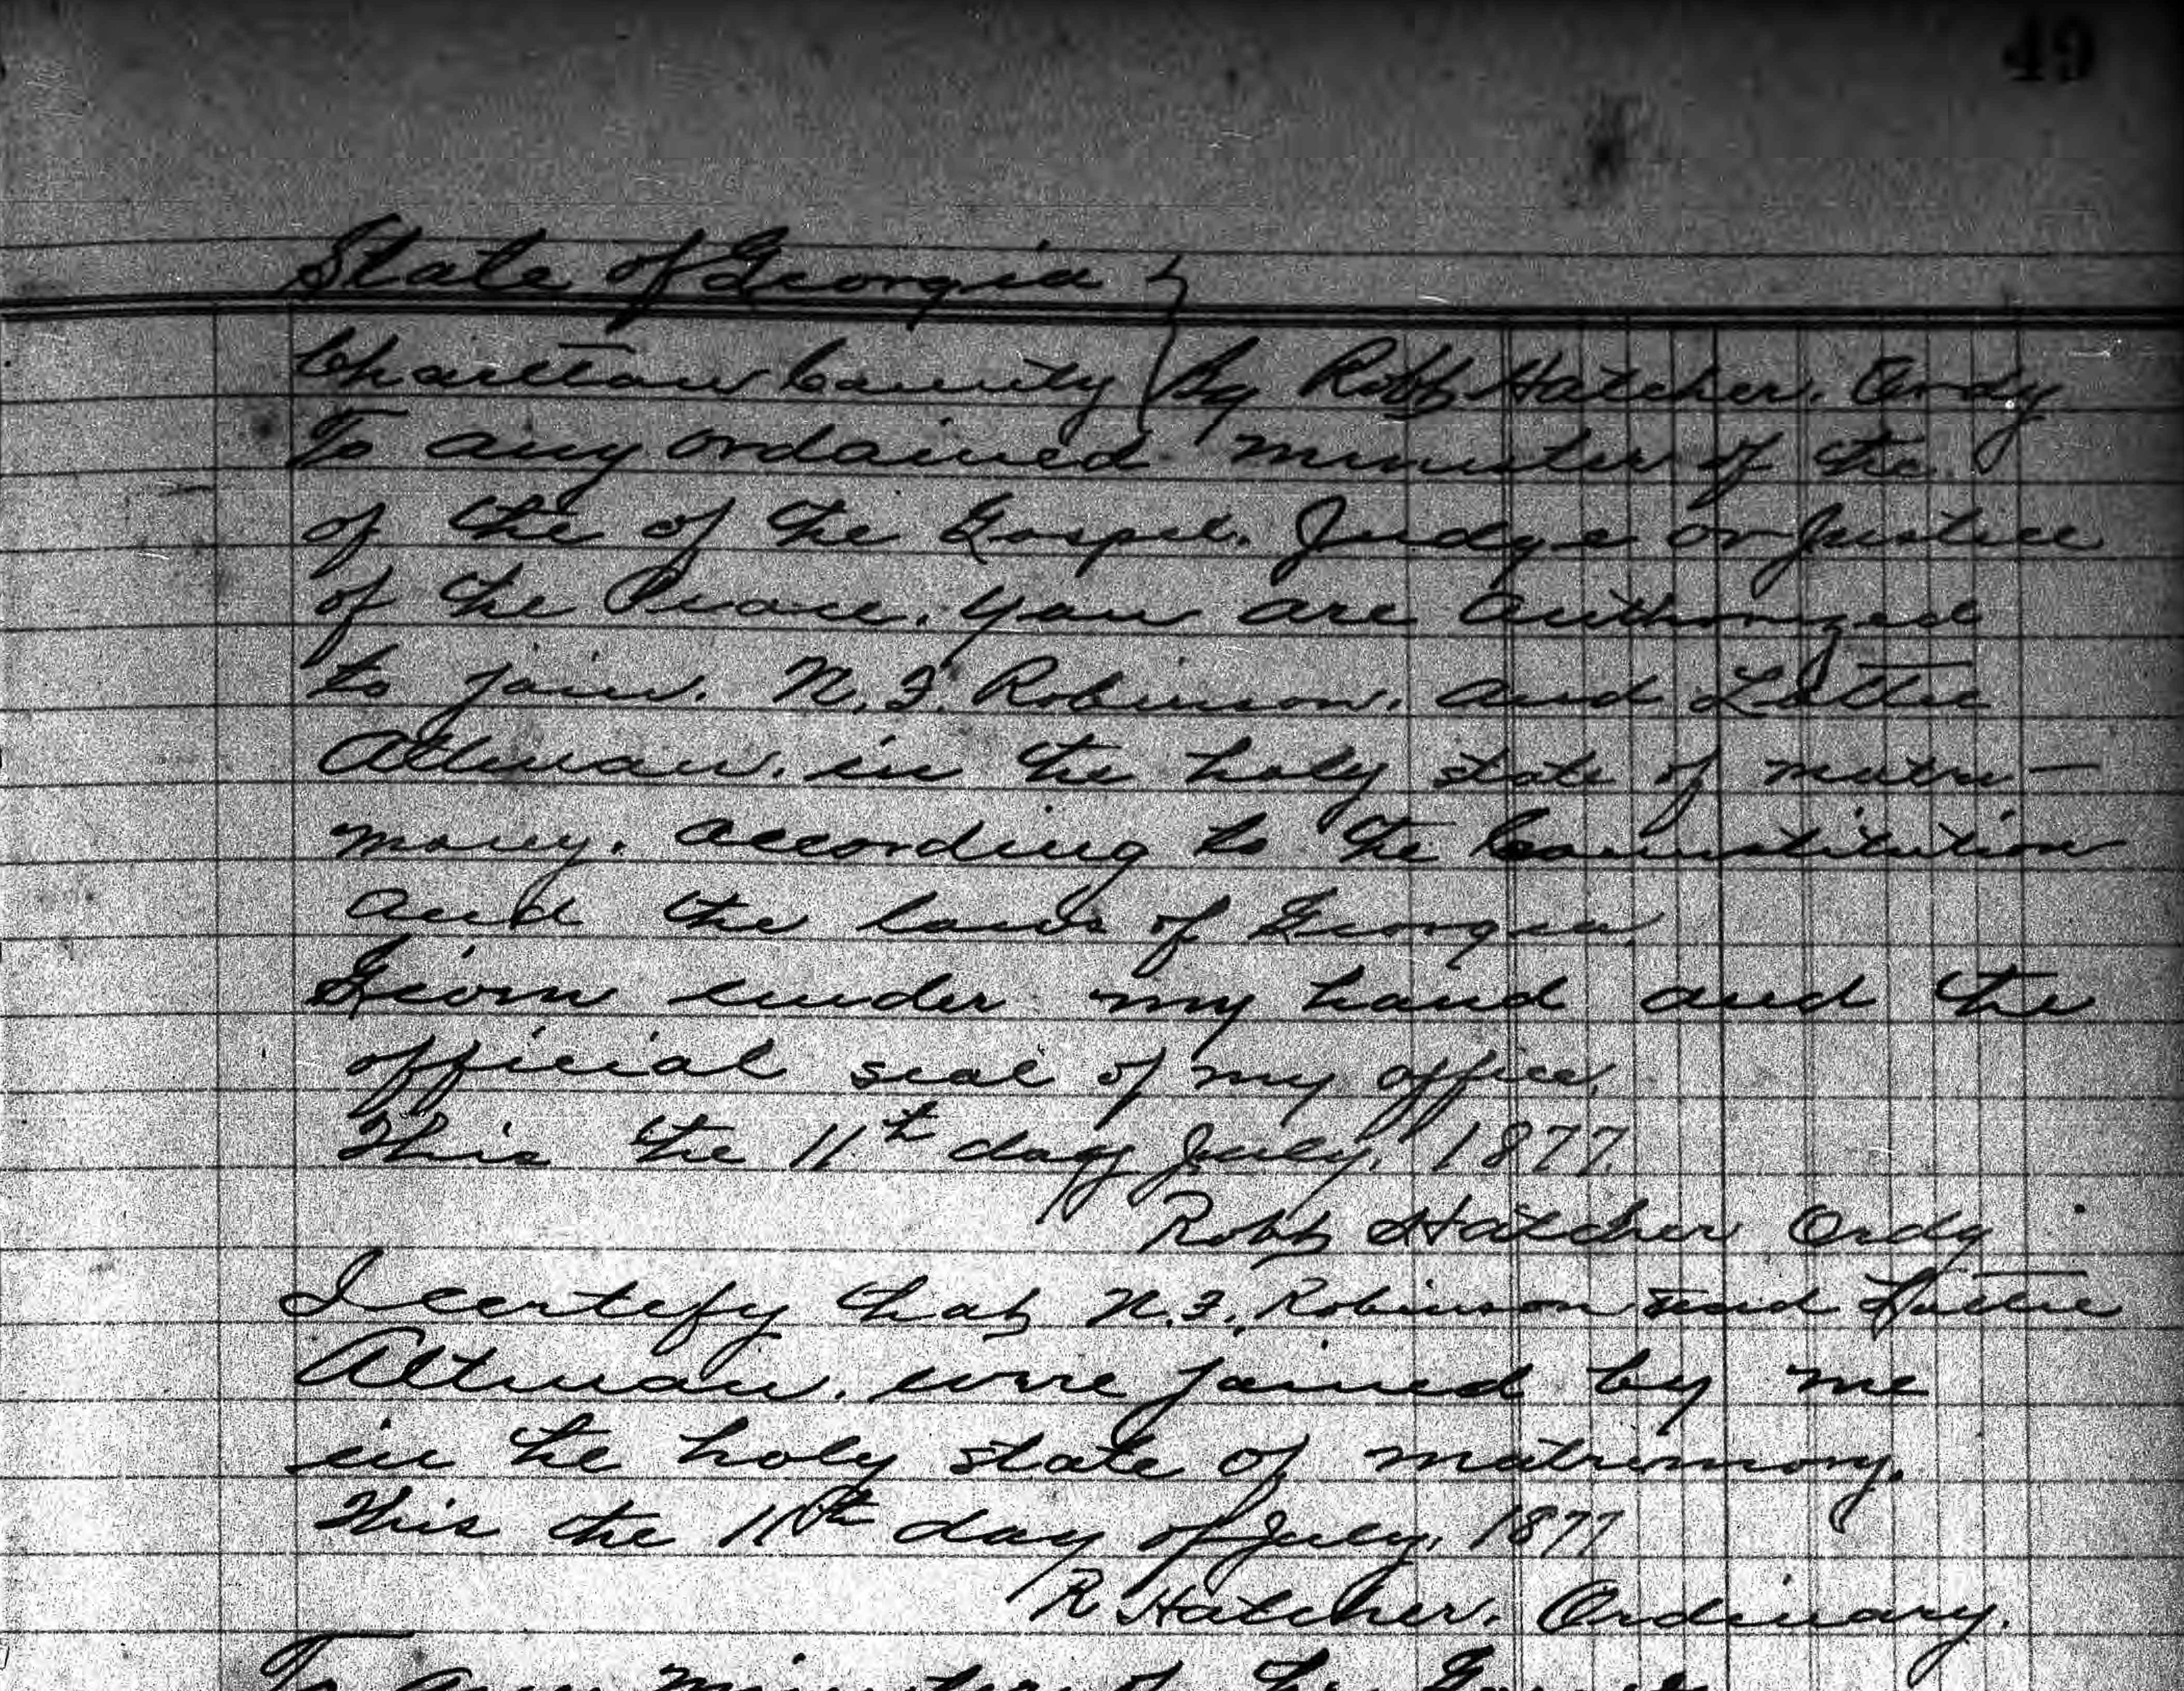 49
State of Georgia
Charlton County } By Robt Hatcher. Ordy
To any ordained minister of the
of the of the Gospel. Judge or Justice
of the Peace. you are authorized
to join. N. F. Robinson. and Lottie
Altman. in the holy state of matri-
mony. according to the Constitution
and the laws of Georgia.
Given under my hand and the
official seal of my office.
This the 11th day July, 1877.
Robt Hatcher Ordy
I certefy that N. F. Robinson and Lottie
Altman. were joined by me
in the holy state of matrimony.
This the 11th day of July. 1877
R Hatcher. Ordinary.
To any Minister of the Gospel